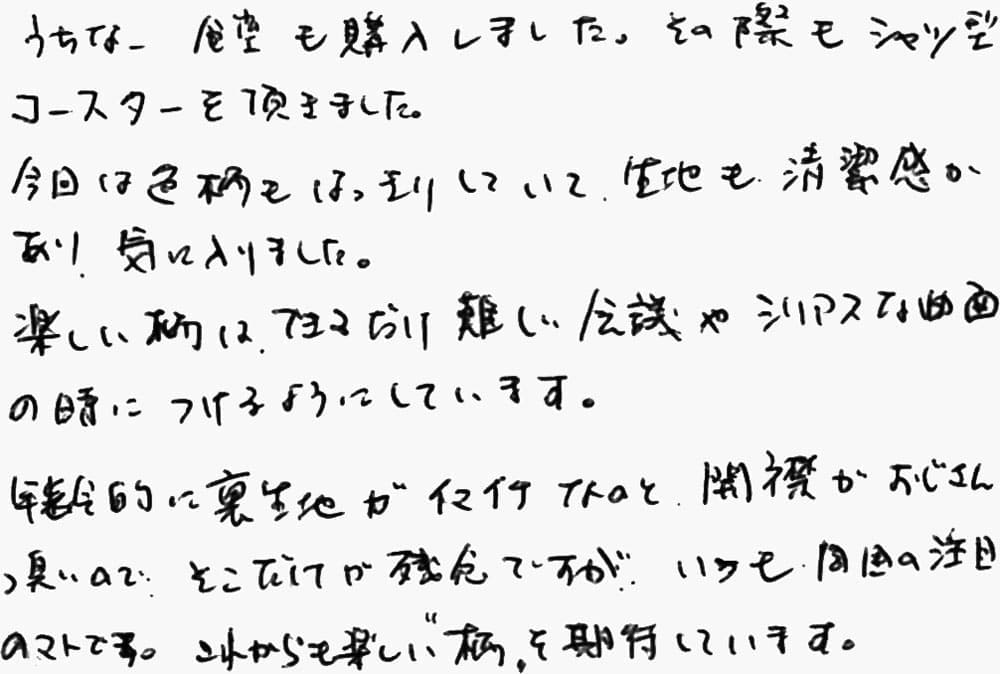 うちなー食堂も購入しました。その際もシャツ型
コースターを頂きました。
今回は色柄もはっきりしていて、生地も清潔感が
あり、気に入りました。
楽しい柄は、できるだけ難しい会議やシリアスな
の時につけるようにしています。
的に裏生地がイマイチなのと、開襟がおじさん
臭いので、そこだけが残念ですが、いつも周囲の注目
のマトです。これからも楽しい〝柄〟を期待しています。